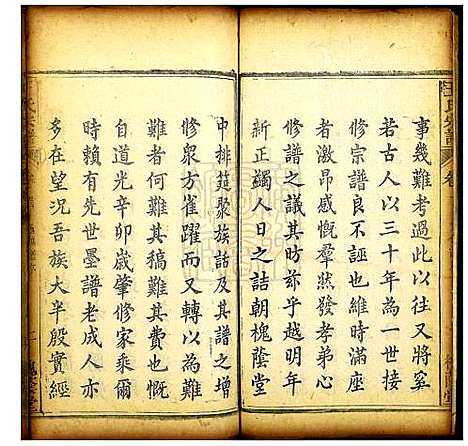 事幾難考過此以往又將奚
若古人以三十年為一世接
修宗譜良不誣也維時滿座
者激昂感慨羣然發孝弟心
修譜之議其昉乎越明年
新正蠲人日之詰朝槐蔭堂
中排筵聚族話及其譜之增
修眾方雀躍而又轉以為難
難者何難其稿難其費也慨
自道光辛卯歲肇修家乘爾
時賴有世墨譜老成人亦
多在望況吾族大半殷實經